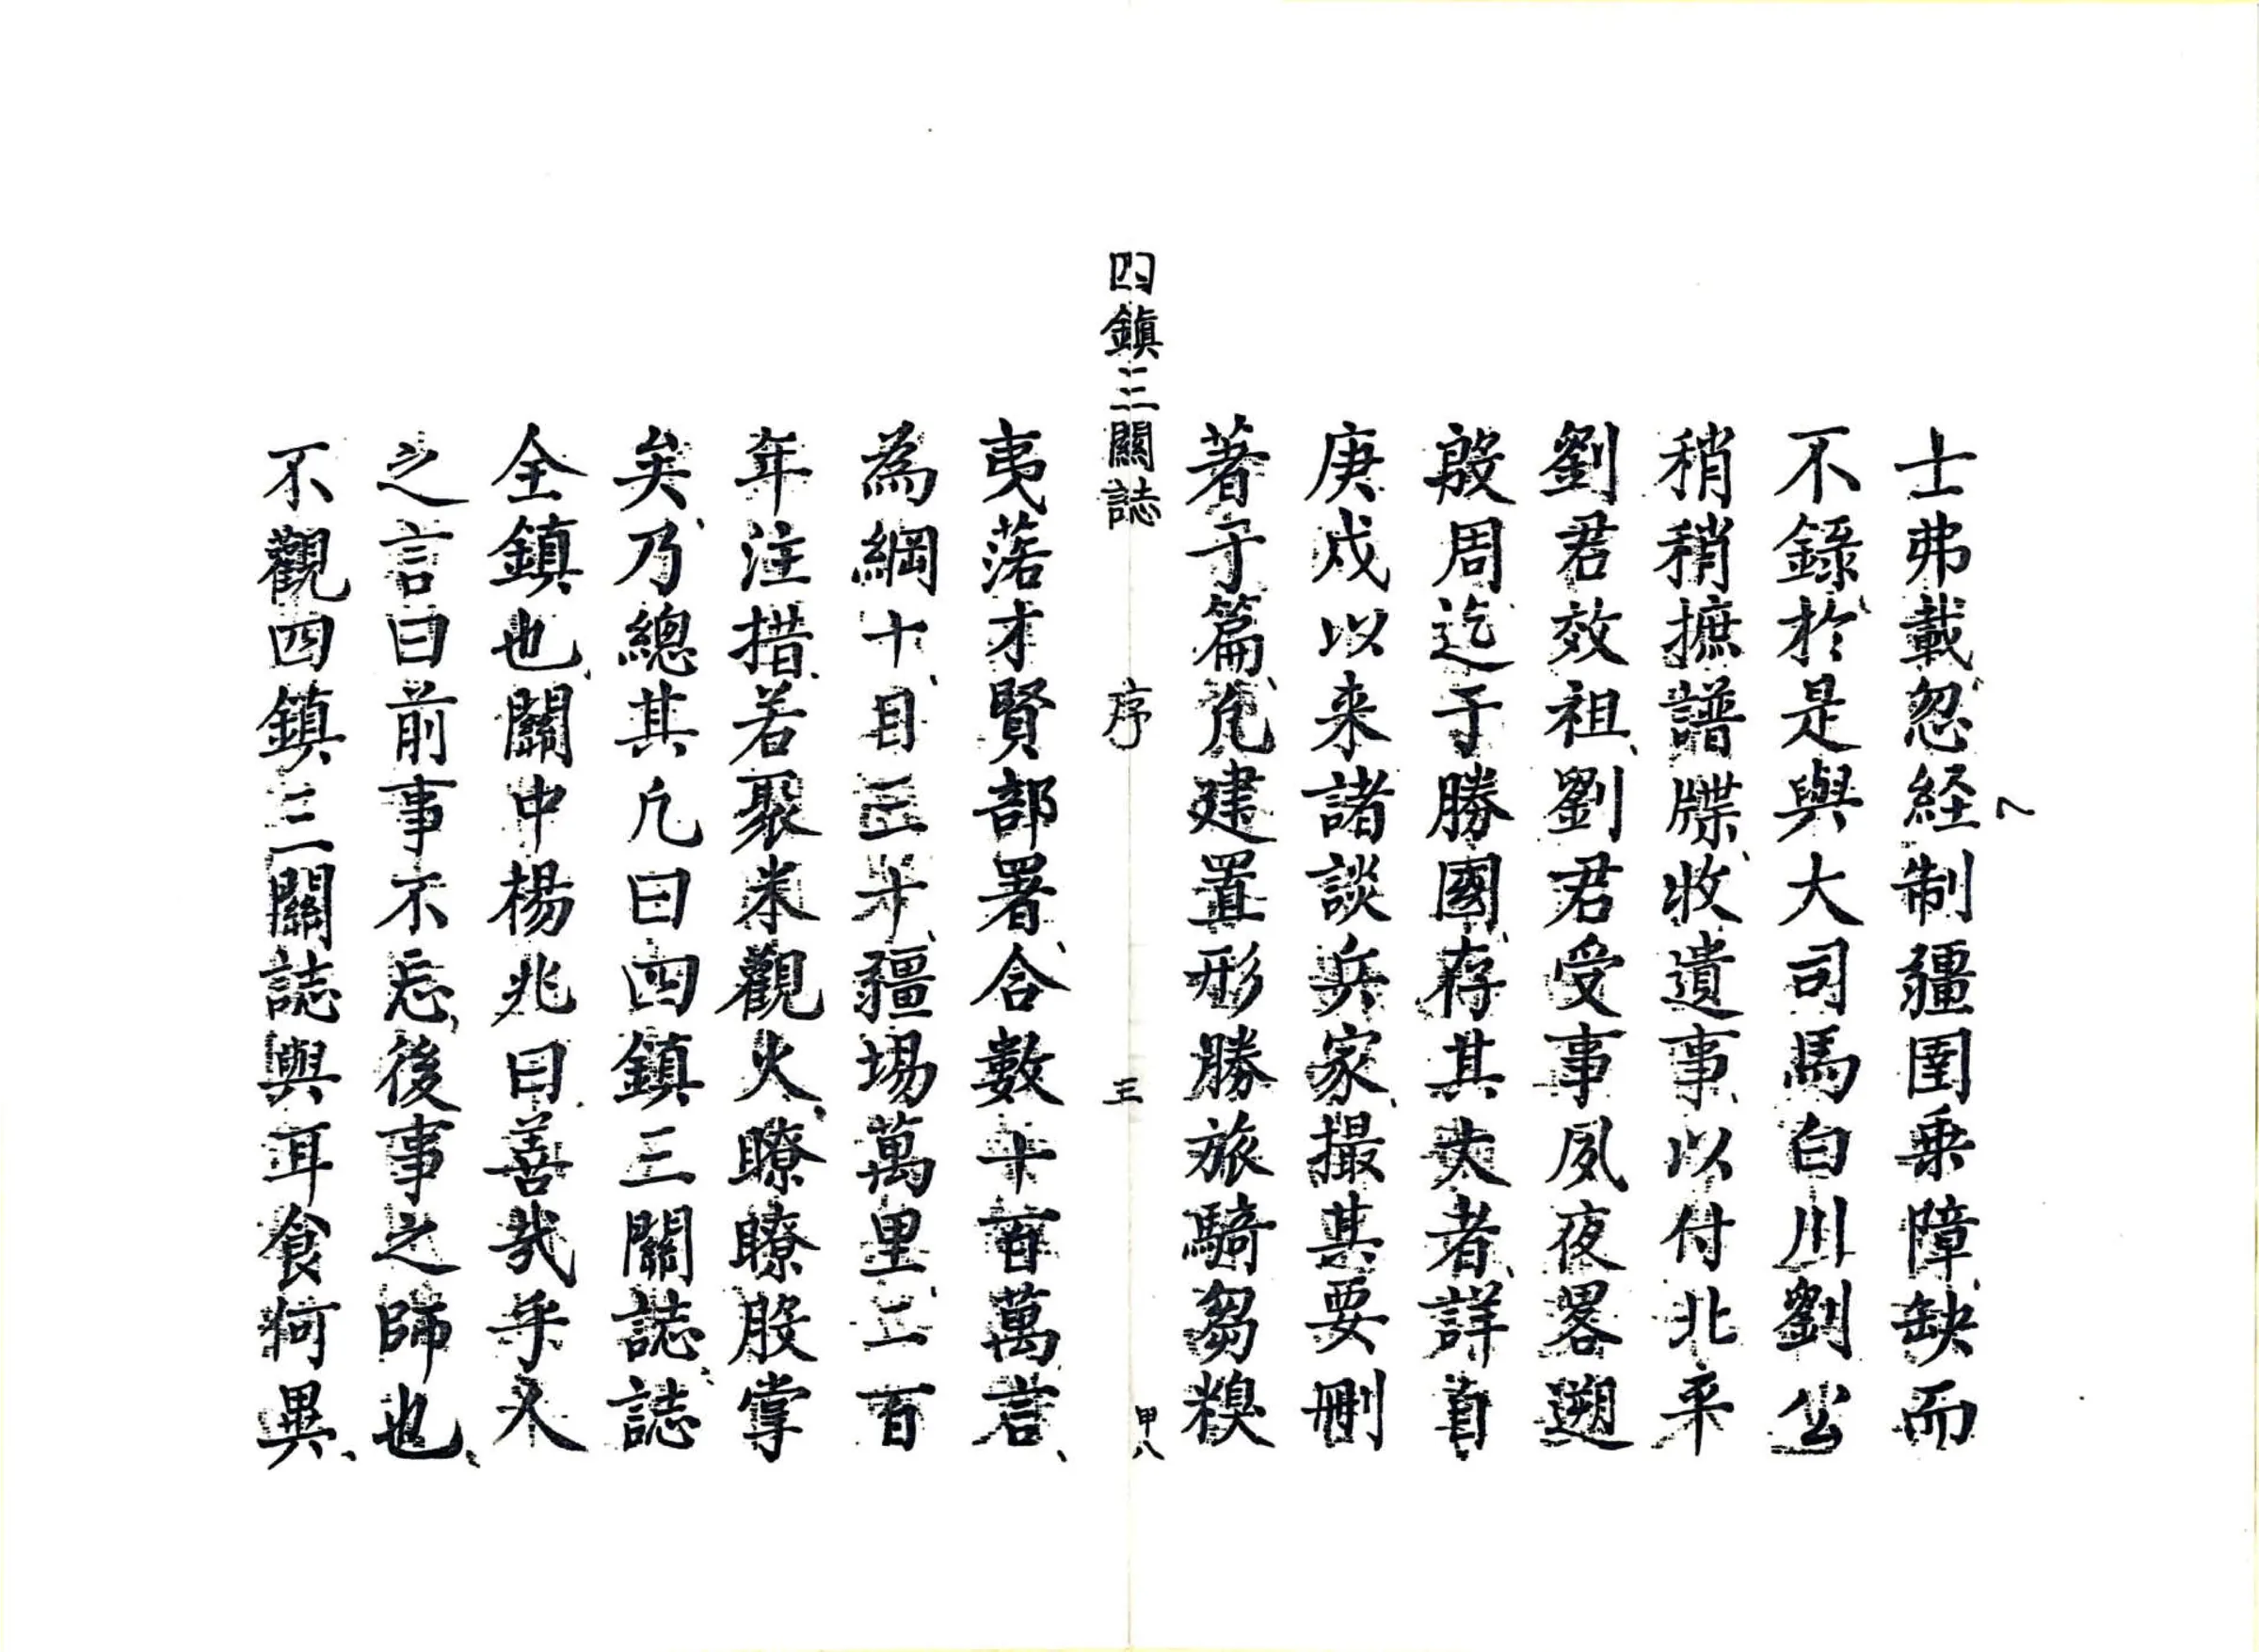 士弗載忽経制疆圉乗障缺而
不錄於是與大司馬白川劉公
稍稍摭譜牒收遺事以付北来
劉君效祖劉君受事夙夜畧遡
殷周迄于勝國存其大者詳自
庚戌以来諸談兵家撮其要刪
著于篇凢建置形勝旅騎芻糗
四鎮三關誌 序 三 甲八
夷落才賢部署合數十百萬言
為綱十目三十疆埸萬里二百
年注措若聚米觀火瞭瞭股掌
矣乃總其凢曰四鎮三關誌誌
全鎮也關中楊兆曰善哉乎人
之言曰前事不忘後事之師也
不觀四鎮三關誌與耳食何異